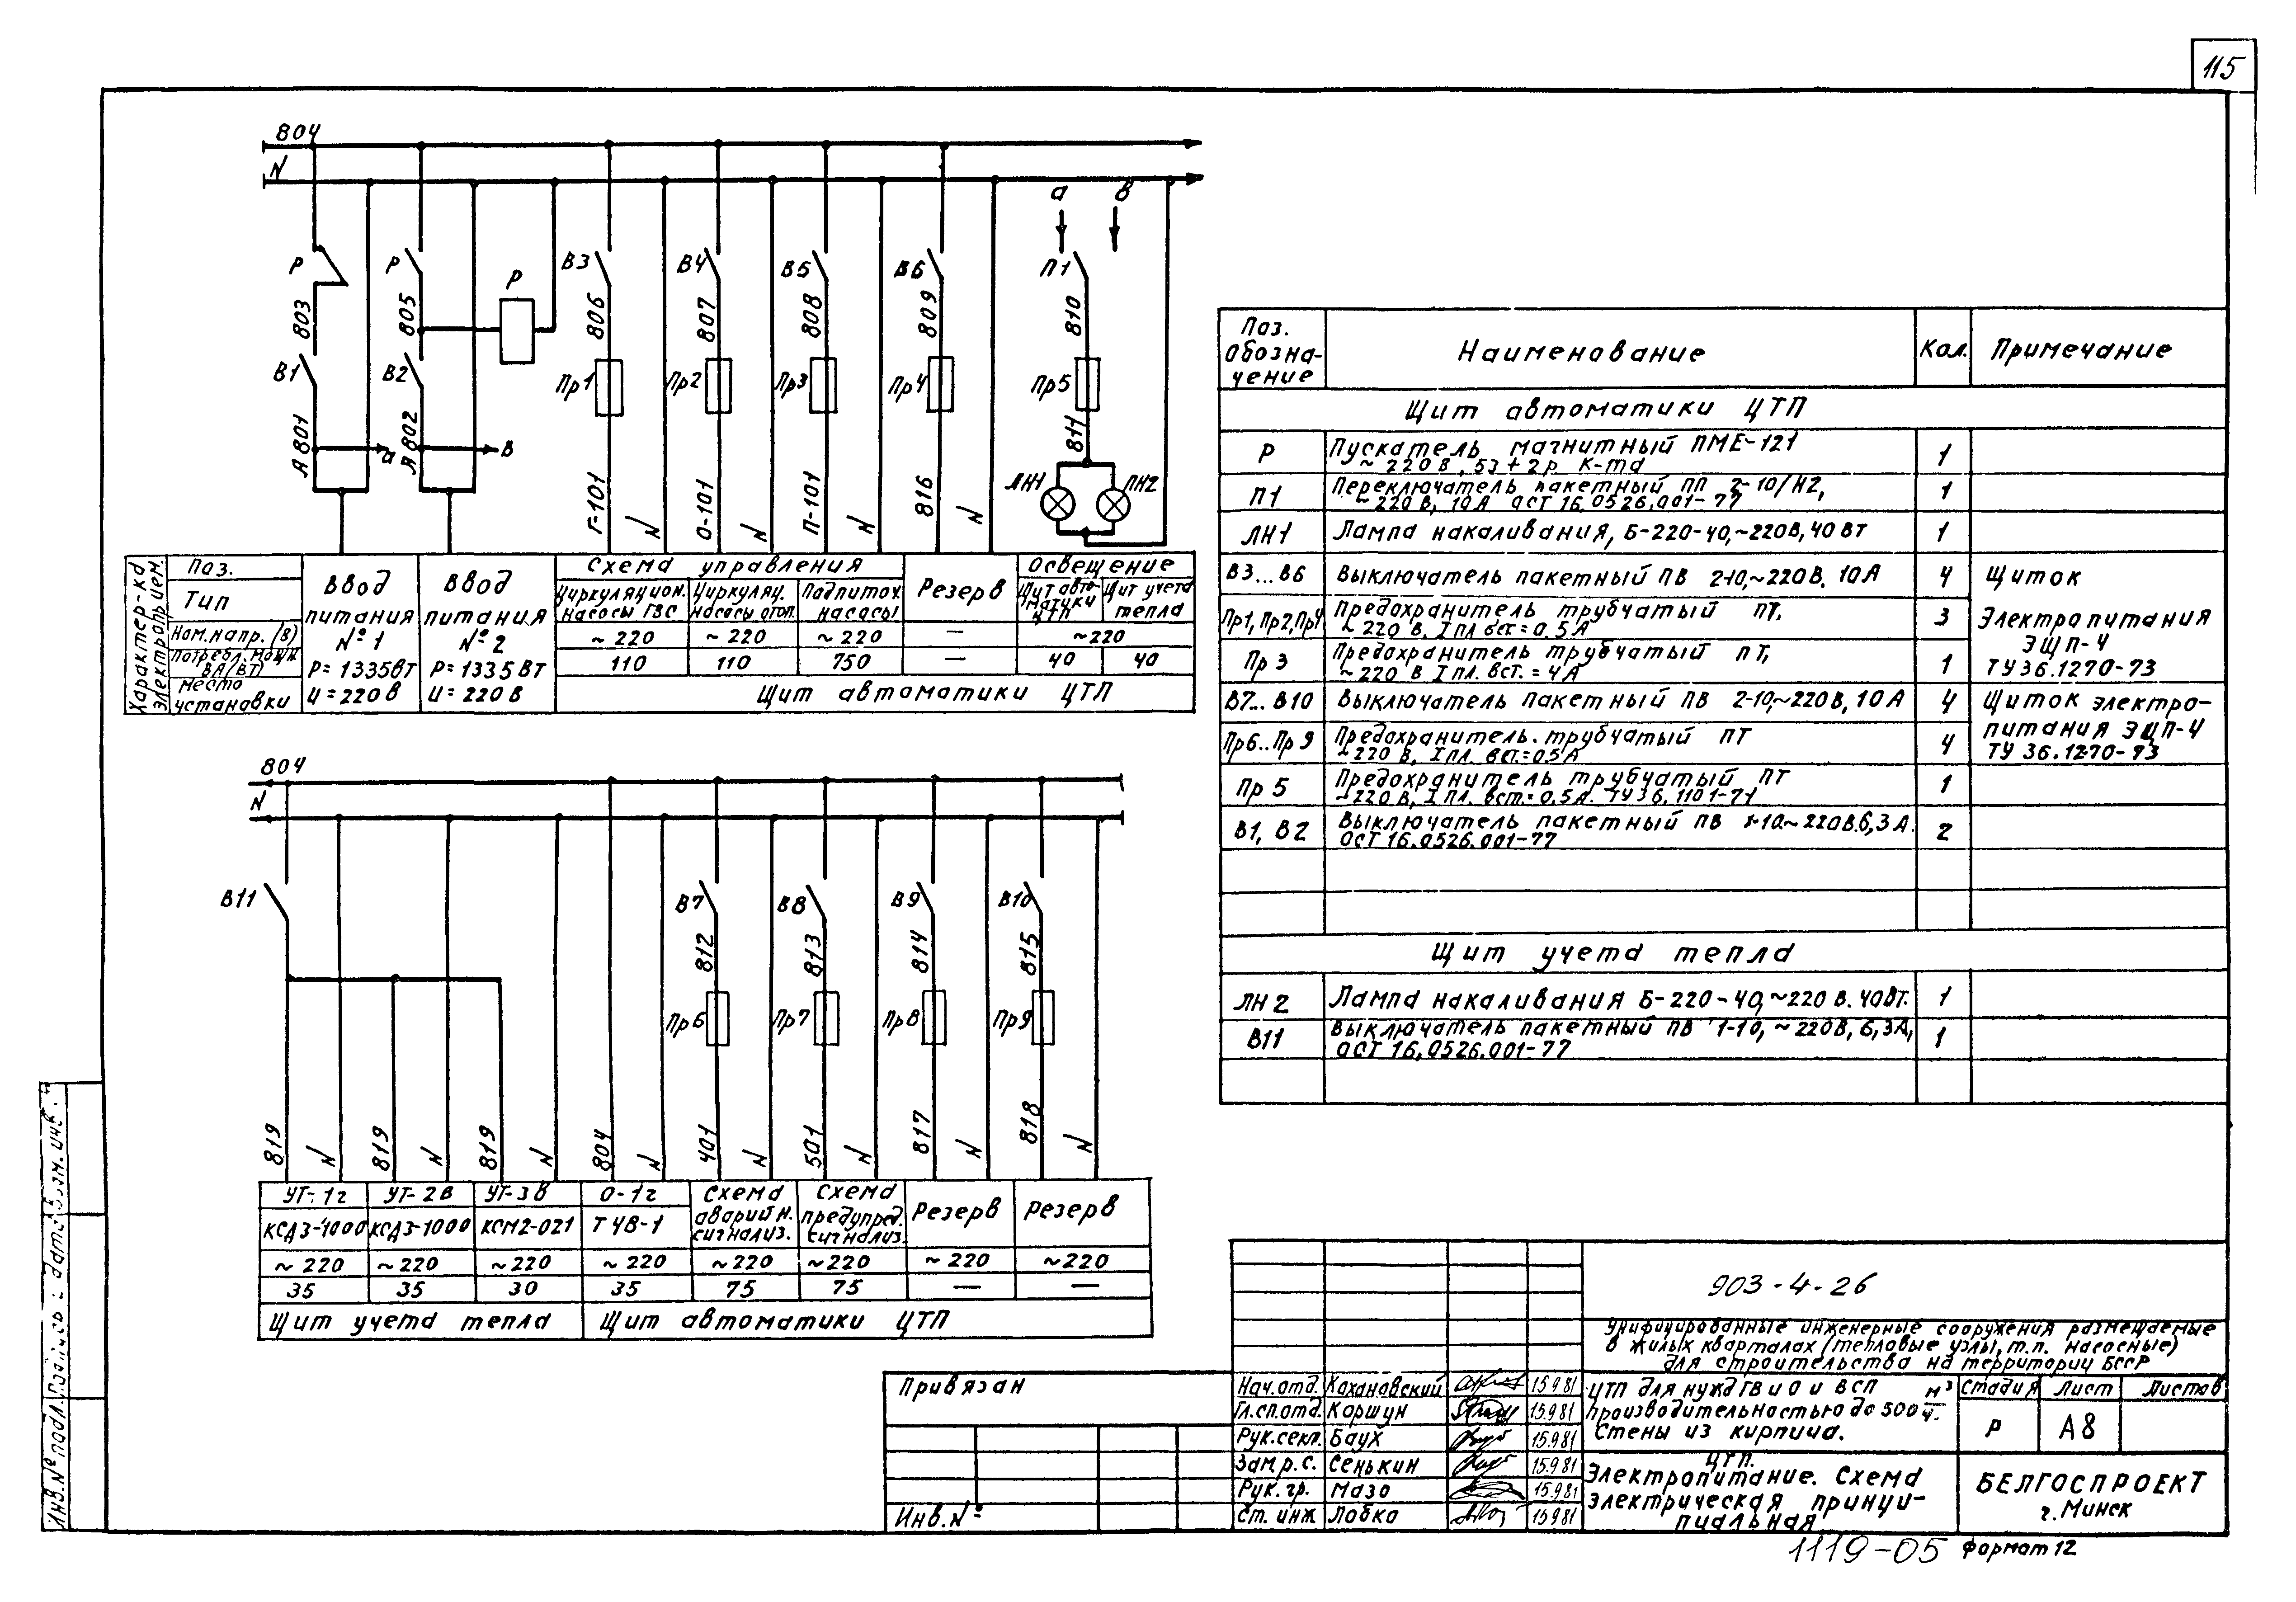 115
804
N
а
в
Р
Р
Р
В3
В4
В5
В6
П1
803
805
806
807
808
809
810
В1
В2
Пр1
Пр2
Пр3
Пр4
Пр5
А801
а
А802
в
811
ЛН1
ЛН2
Г-101
N
О-101
N
П-101
N
816
N
Характер-ка
электроприем.
Поз.
Тип
Ном. напр. (В)
Потребл. мощн
ВА(Вт)
место
установки
Ввод
питания
№ 1
Р=1335Вт
U=220В
Ввод
питания
№ 2
Р=1335Вт
U=220В
Схема управления
Резерв
Освещение
Циркуляцион.
насосы ГВС
Циркуляц.
насосы отоп.
Подпиточ.
насосы
Щит авто-
матики
ЦТП
Щит учета
тепла
~220
~220
~220
—
~220
110
110
750
—
40
40
Щит автоматики ЦТП
804
N
В11
В7
В8
В9
В10
812
813
814
815
Пр6
Пр7
Пр8
Пр9
819
N
819
N
819
N
804
N
401
N
501
N
817
N
818
N
УТ-1г
УТ-2в
УТ-3в
О-1г
Схема
аварийн.
сигнализ.
Схема
предупред.
сигнализ.
Резерв
Резерв
КСД3-1000
КСД3-1000
КСМ2-021
Т4В-1
~220
~220
~220
~220
~220
~220
~220
~220
35
35
30
35
75
75
—
—
Щит учета тепла
Щит автоматики ЦТП
Поз.
обозна-
чение
Наименование
Кол.
Примечание
Щит автоматики ЦТП
Р
Пускатель магнитный ПМЕ-121
~220В, 5з+2р к-та
1
П1
Переключатель пакетный ПП 2-10/Н2,
~220В, 10А ОСТ 16.0526.001-77
1
ЛН1
Лампа накаливания, Б-220-40,~220В,40Вт
1
В3...В6
Выключатель пакетный ПВ 2-10,~220В. 10А
4
Щиток
Пр1,Пр2,Пр4
Предохранитель трубчатый ПТ,
~220В, Iпл вст.=0.5А
3
Электропитания
ЭЩП-4
Пр3
Предохранитель трубчатый ПТ,
~220В Iпл. вст.=4А
1
ТУ36.1270-73
В7...В10
Выключатель пакетный ПВ 2-10,~220В, 10А
4
Щиток электро-
питания ЭЩП-4
Пр6..Пр9
Предохранитель. трубчатый ПТ
~220В, Iпл. вст.=0.5А
4
ТУ 36.1270-73
Пр5
Предохранитель трубчатый ПТ
~220В, Iпл. вст.=0.5А. ТУ36.1101-71
1
В1, В2
Выключатель пакетный ПВ 1-10.~220В.6,3А.
ОСТ 16.0526.001-77
2
Щит учета тепла
ЛН2
Лампа накаливания Б-220-40,~220В. 40Вт.
1
В11
Выключатель пакетный ПВ 1-10, ~220В, 6,3А,
ОСТ 16.0526.001-77
1
903-4-26
Унифицированные инженерные сооружения размещаемые
в жилых кварталах (тепловые узлы, т.п. насосные)
для строительства на территории БССР
Привязан
Инв.№
Нач.отд. Кохановский 15.9.81
Гл.сп.отд. Коршун 15.9.81
Рук.секл. Баух 15.9.81
Зам.р.с. Сенькин 15.9.81
Рук.гр. Мазо 15.9.81
Ст.инж Лобко 15.9.81
ЦТП для нужд ГВ и О и ВСП
производительностью до 500 м³/ч.
Стены из кирпича.
Стадия Лист Листов
Р А8
ЦТП.
Электропитание. Схема
электрическая принци-
пиальная
БЕЛГОСПРОЕКТ
г.Минск
1119-05 Формат 12
Инв.№подл.